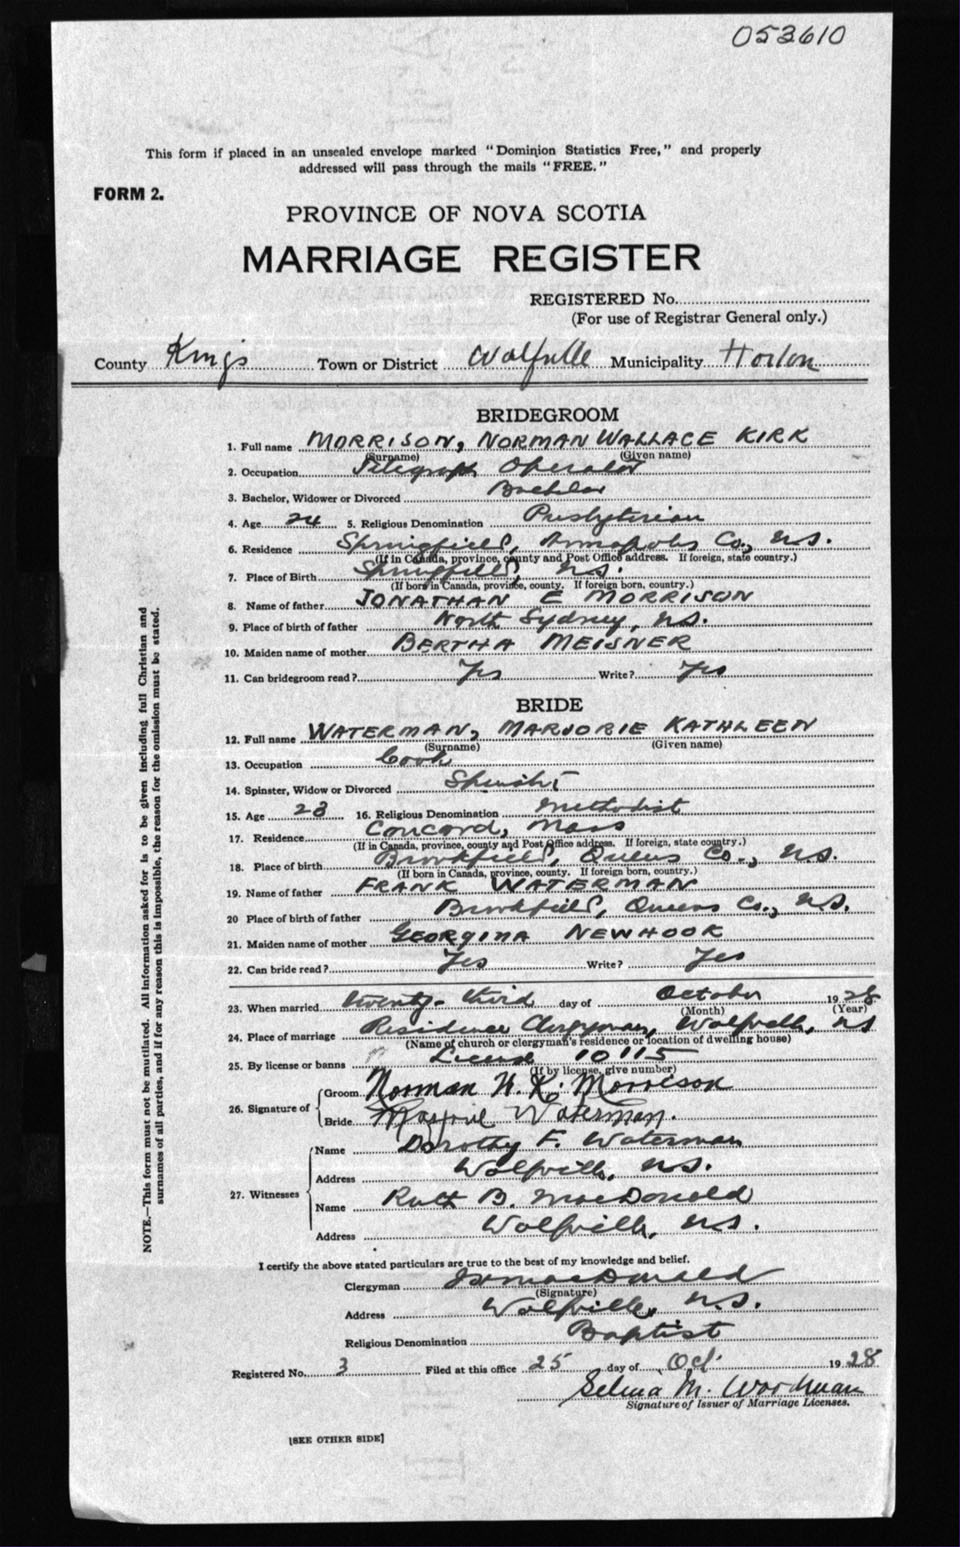 053610
This form if placed in an unsealed envelope marked "Dominion Statistics Free," and properly
addressed will pass through the mails "FREE."
FORM 2.
PROVINCE OF NOVA SCOTIA
MARRIAGE REGISTER
REGISTERED No.
(For use of Registrar General only.)
County Kings Town or District Wolfville Municipality Horton
BRIDEGROOM
1. Full name MORRISON, NORMAN WALLACE KIRK
(Surname) (Given name)
2. Occupation Telegraph Operator
3. Bachelor, Widower or Divorced Bachelor
4. Age 24 5. Religious Denomination Presbyterian
6. Residence Springfield, Annapolis Co., N.S.
(If in Canada, province, county and Post Office address. If foreign, state country.)
7. Place of Birth Springfield, N.S.
(If born in Canada, province, county. If foreign born, country.)
8. Name of father JONATHAN E MORRISON
9. Place of birth of father North Sydney, N.S.
10. Maiden name of mother BERTHA MEISNER
11. Can bridegroom read? Yes Write? Yes
BRIDE
12. Full name WATERMAN, MARJORIE KATHLEEN
(Surname) (Given name)
13. Occupation Cook
14. Spinster, Widow or Divorced Spinster
15. Age 23 16. Religious Denomination Methodist
17. Residence Concord, Mass
(If in Canada, province, county and Post Office address. If foreign, state country.)
18. Place of birth Brookfield, Queens Co., N.S.
(If born in Canada, province, county. If foreign born, country.)
19. Name of father FRANK WATERMAN
20 Place of birth of father Brookfield, Queens Co., N.S.
21. Maiden name of mother GEORGINA NEWHOOK
22. Can bride read? Yes Write? Yes
23. When married twenty-third day of October 1928
(Month) (Year)
24. Place of marriage Residence Clergyman, Wolfville, NS
(Name of church or clergyman's residence or location of dwelling house)
25. By license or banns License 10115
(If by license, give number)
26. Signature of Groom Norman W. K. Morrison
Bride Marjorie Waterman.
27. Witnesses Name Dorothy F. Waterman
Address Wolfville, N.S.
Name Ruth B. MacDonald
Address Wolfville, N.S.
I certify the above stated particulars are true to the best of my knowledge and belief.
Clergyman MacDonald
(Signature)
Address Wolfville, N.S.
Religious Denomination Baptist
Registered No. 3 Filed at this office 25 day of Oct. 1928
Selma M. Wordman
Signature of Issuer of Marriage Licenses.
[SEE OTHER SIDE]
NOTE.—This form must not be mutilated. All information asked for is to be given including full Christian and
surnames of all parties, and if for any reason this is impossible, the reason for the omission must be stated.